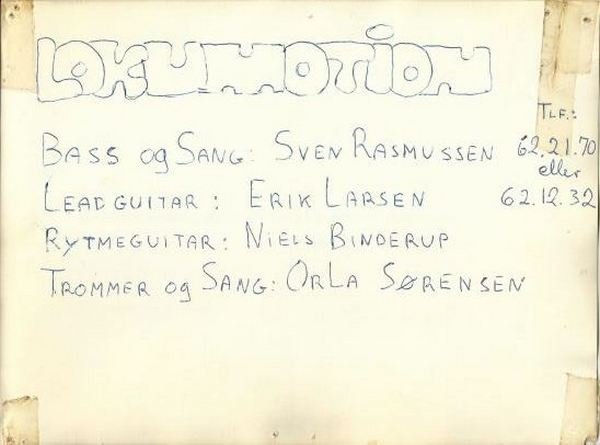 LOKUMOTION
TLF.:
BASS og SANG: SVEN RASMUSSEN 62.21.70
eller
LEADGUITAR: ERIK LARSEN 62.12.32
RYTMEGUITAR: NIELS BINDERUP
TROMMER og SANG: ORLA SØRENSEN